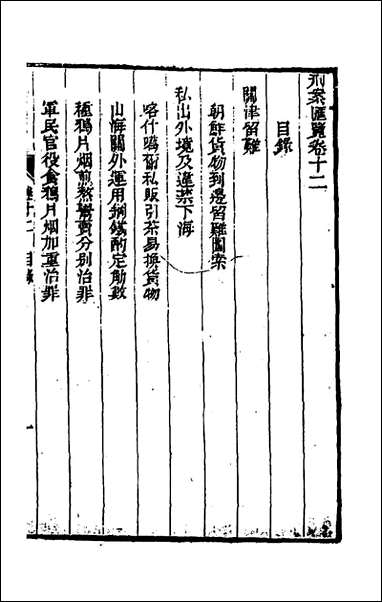 刑案匯覽卷十二
目錄
關津留難
朝鮮貨物到邊留難圖索
私出外境及違禁下海
喀什噶爾私販引茶易換貨物
山海關外運用銅鐵酌定觔數
種鴉片烟煎熬興賣分別治罪
軍民官役食鴉片烟加重治罪
卷十二 目錄